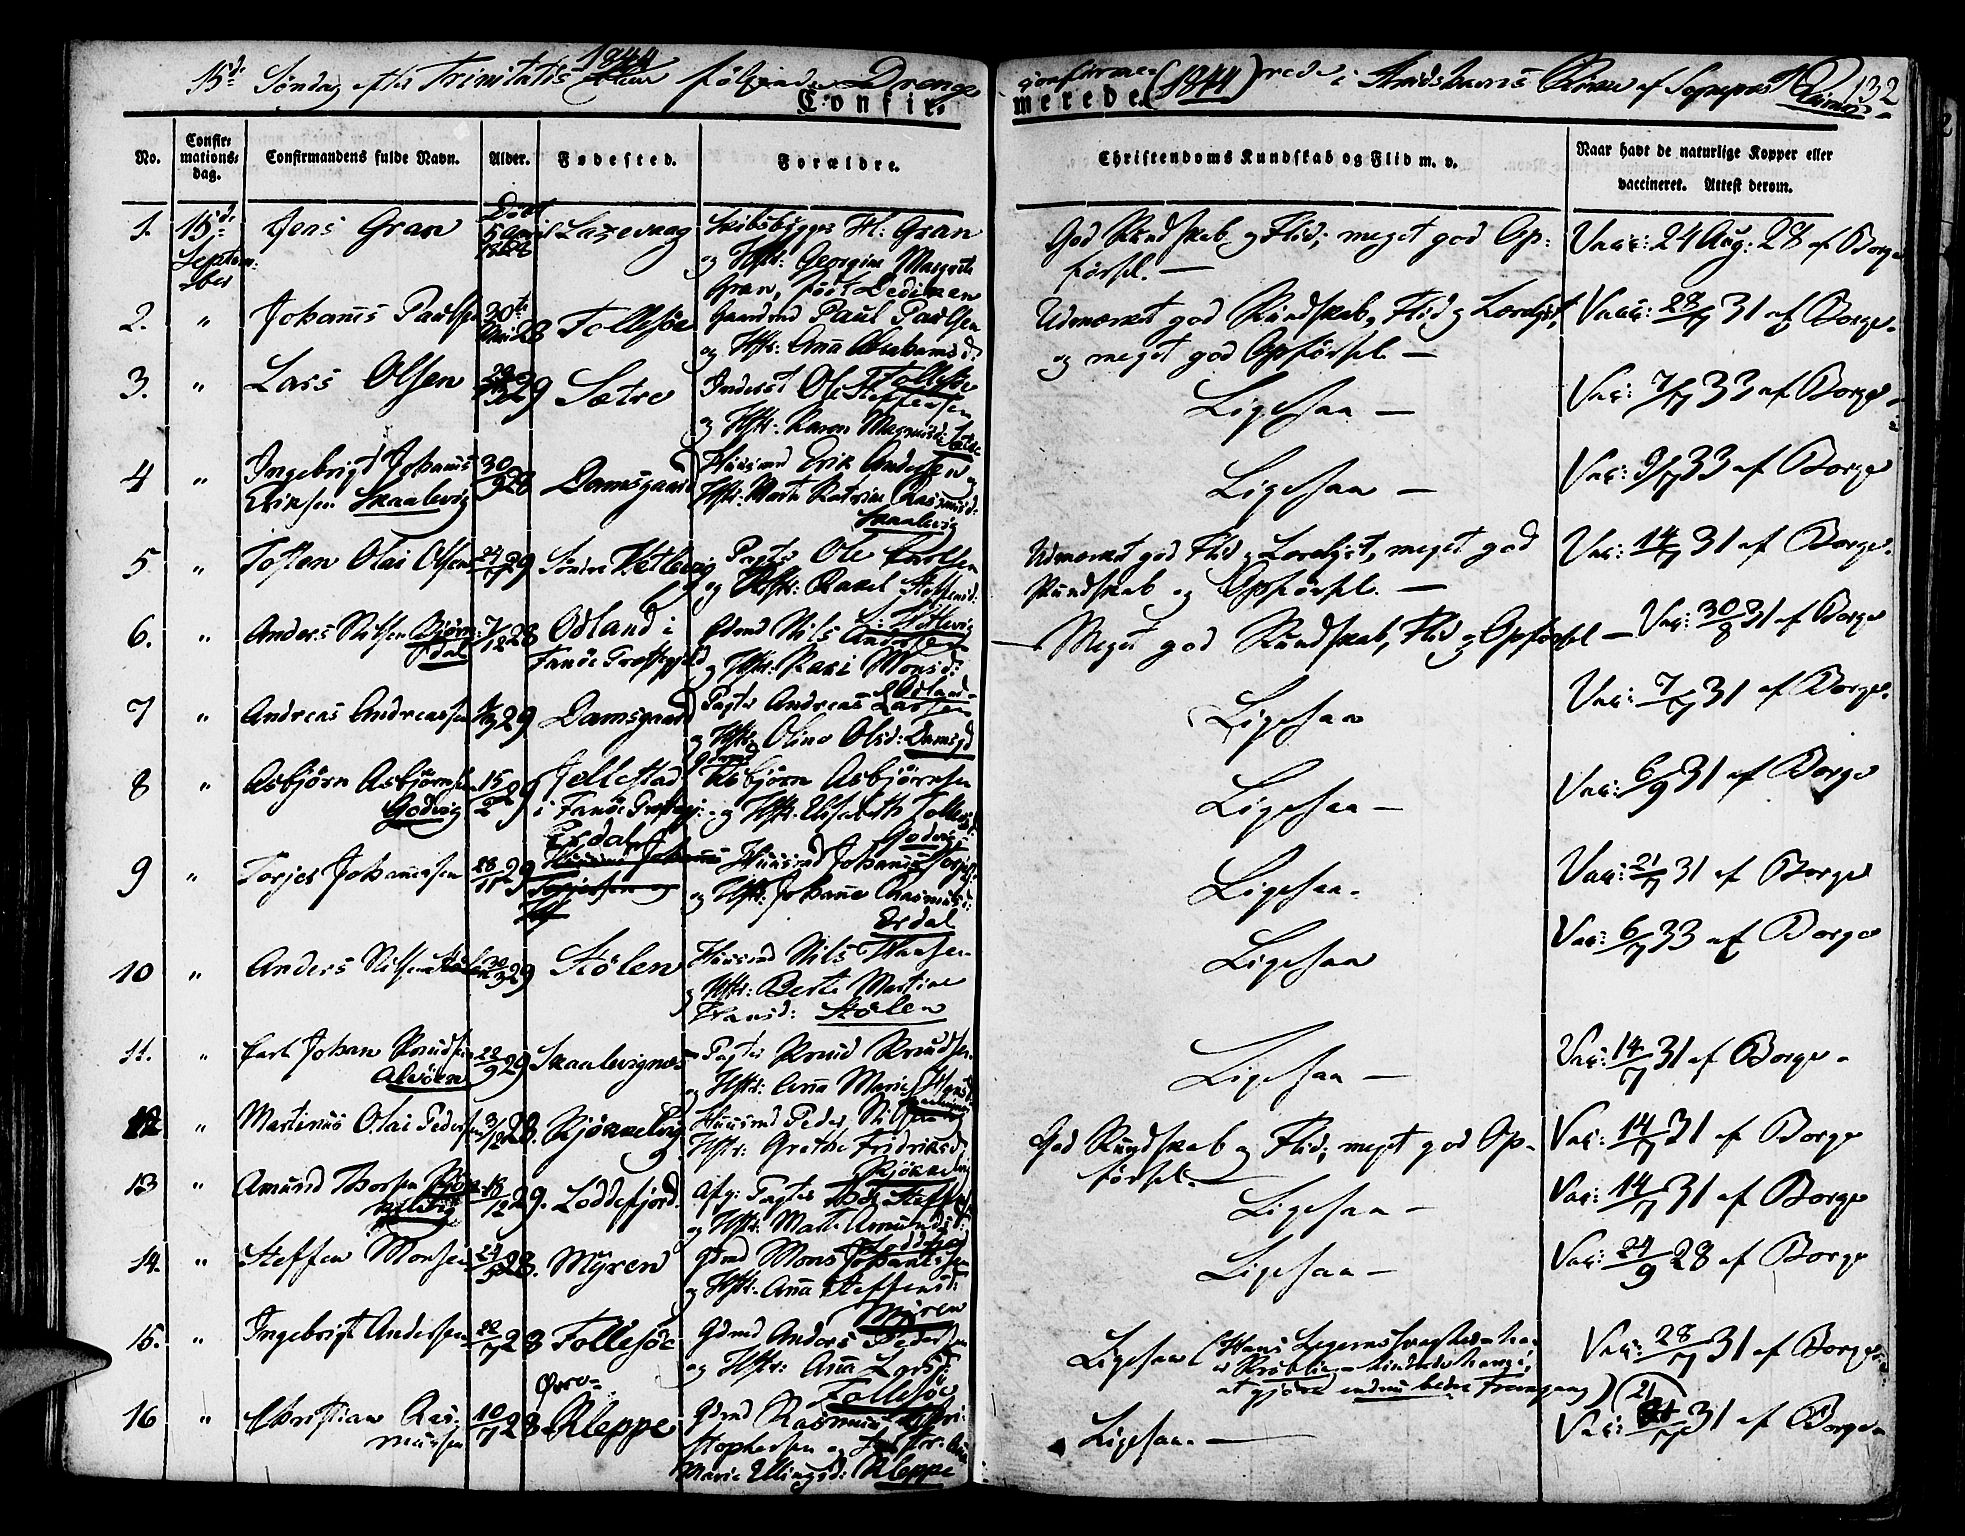 15d. Søndag efter Trinitatis 1844 følgende Drenge confirme- (1844) rede i 132
Confir- merede.
No. Confir-mations-dag. Confirmandens fulde Navn. Alder. Fødested. Forældre. Christendoms Kundskab og Flid m. v. Naar havt de naturlige Kopper eller vaccineret. Attest derom.
1. 15d. Septem-ber Jens Gran Født 5 April Laxevaag Skibsbygger Gran
og Hstr: Georgine Margrete
Gran, født
God Kundskab og Flid; meget god Op-
førsel. —
Vacc: 24 Aug. 28 af Borge
2. " Johannes Paulsen 30te 28 Follesøe Gaardmd Paul Paulsen
og Hstr: Anna Abrahamsd:
Follesøe
Udmærket god Kundskab, Flid og Lærelyst,
og meget god Opførsel —
Vacc: 23/7 31 af Borge
3. " Lars Olsen 29 Sætre Inderst Ole Steffensen
og Hstr: Karen Magnusd: Sætre
Ligesaa —
Vac: 7/7 33 af Borge
4 " Ingebrigt Johannes
Eriksen Skaalevig 30/9 28 Damsgaard Huusmd Erik Andersen og
Hstr: Marte Katrine Rasmusd:
Skaalevig
Ligesaa —
Vac: 9/7 33 af Borge
5 " Tosten Olai Olsen 29 Søndre Hetlevig Pagter Ole Carlsen
og Hstr: Rakel Steffensd:
S: Hetlevig
Udmærket god Flid og Lærelyst, meget god
Kundskab og Opførsel. —
Vac: 14/7 31 af Borge.
6. " Anders Nilsen Bjørn-
dal 7/12 28 Odland i
Fanøe Præstegjeld Gdmd Nils Andersen
og Hstr: Kari Monsd:
Odland
Meget god Kundskab, Flid og Opførsel —
Vac: 30/8 31 af Borge
7 " Andreas Andreassen 29 Damsgaard Pagter Andreas Larsen
og Hstr: Oline Olsd: Damsgd
Ligesaa
Vac: 7/7 31 af Borge.
8 " Asbjørn Asbjørnsen
Godvig 15/2 29 Jellestad
i Fanøe Præstegj: Gdmd Asbjørn Asbjørnsen
og Hstr: Elisabeth
Godvig
Ligesaa —
Vac: 6/9 31 af Borge
9 " Torjer Johannessen 28/11 29 Erdal Huusmd Johannes Torjersen
og Hstr: Johanne Rasmusd:
Erdal
Ligesaa.
Vac: 21/7 31 af Borge
10 " Anders Nilsen Stølen 29 Stølen Huusmd Nils Hansen
og Hstr: Berte Martine
Fransd: Stølen
Ligesaa
Vac: 6/7 33 af Borge
11. " Carl Johan Knudsen
Alvøen 28/9 29 Skaalevignes Pagter Knud Knudsen
og Hstr: Anna Marie
Ligesaa —
Vac: 14/7 31 af Borge
12 " Martinus Olai Pedersen 3/12 28. Kjøkkelvig Huusmd Peder Nilsen og
Hstr: Grethe Fridriksd:
Kjøkkelvig
God Kundskab og Flid; meget god Op-
førsel.
Vac: 14/7 31 af Borge
13 " Amund Thorsen 18/12 29. Loddefjord Afg: Pagter Thor Steffensen
og Hstr: Marte Amundsd:
Loddefjord
Ligesaa —
Vac: 14/7 31 af Borge
14. " Steffen Monsen 28. Myren Gdmd Mons Johannessen
og Hstr: Anna Steffensd:
Myren
Ligesaa —
Vac: 24/9 28 af Borge
15. " Ingebrigt Andersen 28 Follesøe Gdmd Anders Pedersen
og Hstr: Anna Larsd:
Follesøe
Ligesaa (Hans Legems
hindrede ham i
at gjøre endnu bedre Fremgang)
Vac: 28/7 31 af Borge
16 " Christian Ras-
mussen 10/7 28 Øvre-
Kleppe Gdmd Rasmus Chri-
stophersen og Hustr: Anne
Marie Ellingsd: Kleppe
Ligesaa. —
Vac: 21/7 31 af Borge